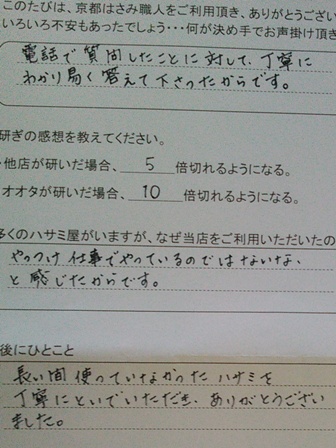 このたびは、京都はさみ職人をご利用頂き、ありがとうござい
いろいろ不安もあったでしょう・・・何が決め手でお声掛け頂き
電話で質問したことに対して、丁寧に
わかり易く答えて下さったからです。
研ぎの感想を教えてください。
・他店が研いだ場合、 5 倍切れるようになる。
オオタが研いだ場合、 10 倍切れるようになる。
多くのハサミ屋がいますが、なぜ当店をご利用いただいたの
やっつけ仕事でやっているのではないな、
と感じたからです。
後にひとこと
長い間使っていなかったハサミを
丁寧にといでいただき、ありがとうござい
ました。